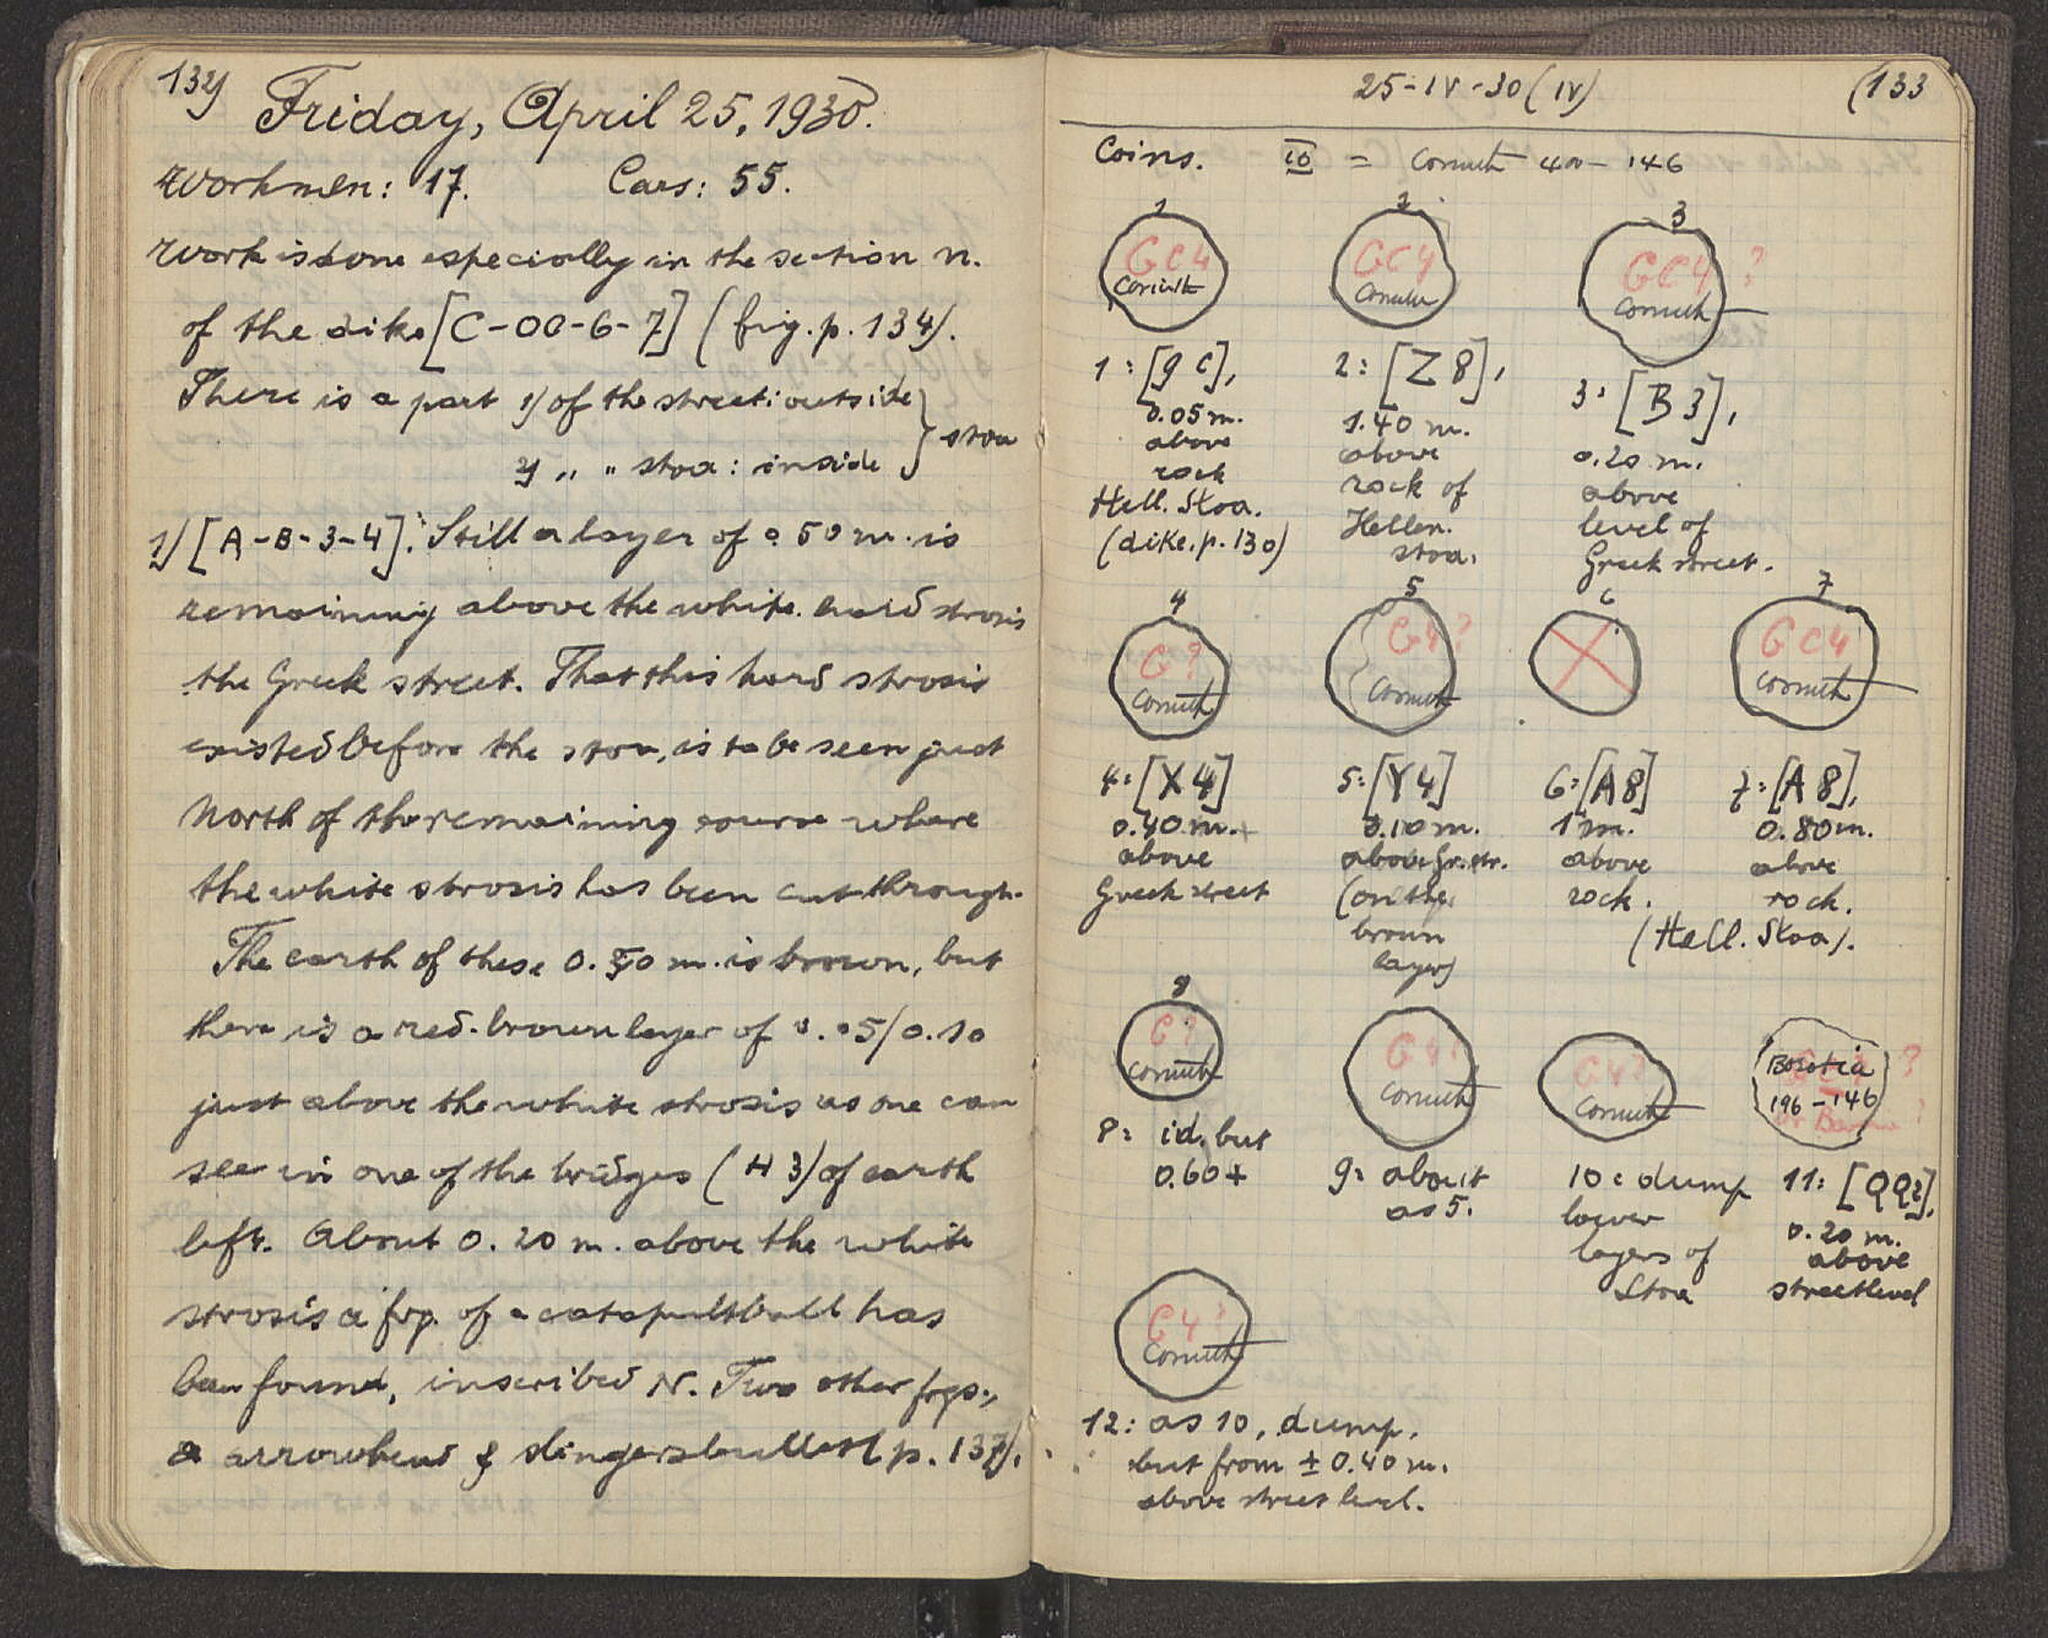 132)
Friday, April 25, 1930.
Workmen: 17. Cars: 55.
Work is done especially in the section n.
of the dike [C-OO-6-7] (fig. p. 134).
There is a part 1) of the street: outside } stoa
2) " " stoa: inside
1) [A-B-3-4]. Still a layer of 0.50 m. is
remaining above the white hard strosis
the Greek street. That this hard strosis
existed before the stoa, is to be seen just
North of the remaining course where
the white strosis has been cut through.
The earth of these 0.50 m. is brown, but
there is a red-brown layer of 0.05/0.10
just above the white strosis as one can
see in one of the bridges (H 3) of earth
left. About 0.20 m. above the white
strosis a frg. of a catapultball has
been found, inscribed N. Two other frgs.,
a arrowhead & slingersbullet (p. 137).
25-IV-30 (IV) (133
Coins. = Corinth 400-146
1 2 3
GC4 GC4 GC4 ?
Corinth Corinth Corinth
1: [9 C], 2: [Z 8], 3: [B 3],
0.05 m. 1.40 m. 0.20 m.
above above above
rock rock of level of
Hell. Stoa. Hellen. Greek street.
(dike, p. 130) stoa.
4 5 6 7
G? G4? GC4
Corinth Corinth Corinth
4: [X 4] 5: [Y 4] 6: [A 8] 7: [A 8],
0.40 m.+ 0.10 m. 1 m. 0.80 m.
above above Gr. str. above above
Greek street (on the rock. rock.
brown (Hell. Stoa).
layer)
8
G? G4? G4? Boeotia ?
Corinth Corinth Corinth 196-146
8: id. but 9: about 10: dump 11: [QQ2],
0.60+ as 5. lower 0.20 m.
layers of above
Stoa streetlevel
G4?
Corinth
12: as 10, dump,
but from ± 0.40 m.
above street level.